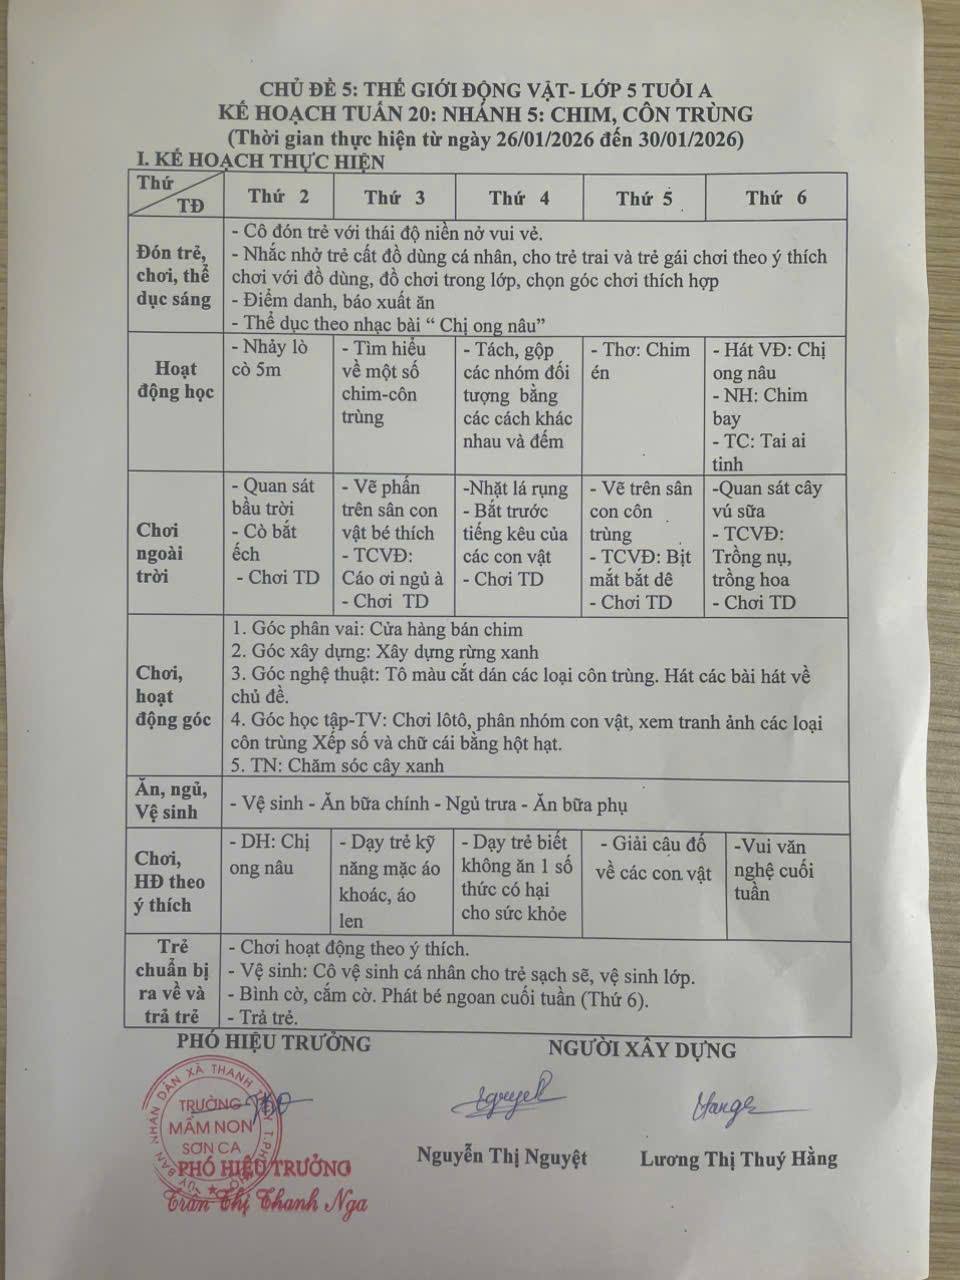 CHỦ ĐỀ 5: THẾ GIỚI ĐỘNG VẬT- LỚP 5 TUỔI A
KẾ HOẠCH TUẦN 20: NHÁNH 5: CHIM, CÔN TRÙNG
(Thời gian thực hiện từ ngày 26/01/2026 đến 30/01/2026)
I. KẾ HOẠCH THỰC HIỆN
Thứ
TĐ
Thứ 2
Thứ 3
Thứ 4
Thứ 5
Thứ 6
Đón trẻ,
chơi, thể
dục sáng
- Cô đón trẻ với thái độ niền nở vui vẻ.
- Nhắc nhở trẻ cất đồ dùng cá nhân, cho trẻ trai và trẻ gái chơi theo ý thích
chơi với đồ dùng, đồ chơi trong lớp, chọn góc chơi thích hợp
- Điểm danh, báo xuất ăn
- Thể dục theo nhạc bài “ Chị ong nâu”
Hoạt
động học
- Nhảy lò
cò 5m
- Tìm hiểu
về một số
chim-côn
trùng
- Tách, gộp
các nhóm đối
tượng bằng
các cách khác
nhau và đếm
- Thơ: Chim
én
- Hát VĐ: Chị
ong nâu
- NH: Chim
bay
- TC: Tai ai
tinh
Chơi
ngoài
trời
- Quan sát
bầu trời
- Cò bắt
ếch
- Chơi TD
- Vẽ phấn
trên sân con
vật bé thích
- TCVĐ:
Cáo ơi ngủ à
- Chơi TD
-Nhặt lá rụng
- Bắt trước
tiếng kêu của
các con vật
- Chơi TD
- Vẽ trên sân
con côn
trùng
- TCVĐ: Bịt
mắt bắt dê
- Chơi TD
-Quan sát cây
vú sữa
- TCVĐ:
Trồng nụ,
trồng hoa
- Chơi TD
Chơi,
hoạt
động góc
1. Góc phân vai: Cửa hàng bán chim
2. Góc xây dựng: Xây dựng rừng xanh
3. Góc nghệ thuật: Tô màu cắt dán các loại côn trùng. Hát các bài hát về
chủ đề.
4. Góc học tập-TV: Chơi lôtô, phân nhóm con vật, xem tranh ảnh các loại
côn trùng Xếp số và chữ cái bằng hột hạt.
5. TN: Chăm sóc cây xanh
Ăn, ngủ,
Vệ sinh
- Vệ sinh - Ăn bữa chính - Ngủ trưa - Ăn bữa phụ
Chơi,
HĐ theo
ý thích
- DH: Chị
ong nâu
- Dạy trẻ kỹ
năng mặc áo
khoác, áo
len
- Dạy trẻ biết
không ăn 1 số
thức có hại
cho sức khỏe
- Giải câu đố
về các con vật
-Vui văn
nghệ cuối
tuần
Trẻ
chuẩn bị
ra về và
trả trẻ
- Chơi hoạt động theo ý thích.
- Vệ sinh: Cô vệ sinh cá nhân cho trẻ sạch sẽ, vệ sinh lớp.
- Bình cờ, cắm cờ. Phát bé ngoan cuối tuần (Thứ 6).
- Trả trẻ.
PHÓ HIỆU TRƯỞNG
NGƯỜI XÂY DỰNG
TRƯỜNG
MẦM NON
SƠN CA
PHÓ HIỆU TRƯỞNG
Trần Thị Thanh Nga
Nguyễn Thị Nguyệt
Lương Thị Thuý Hằng